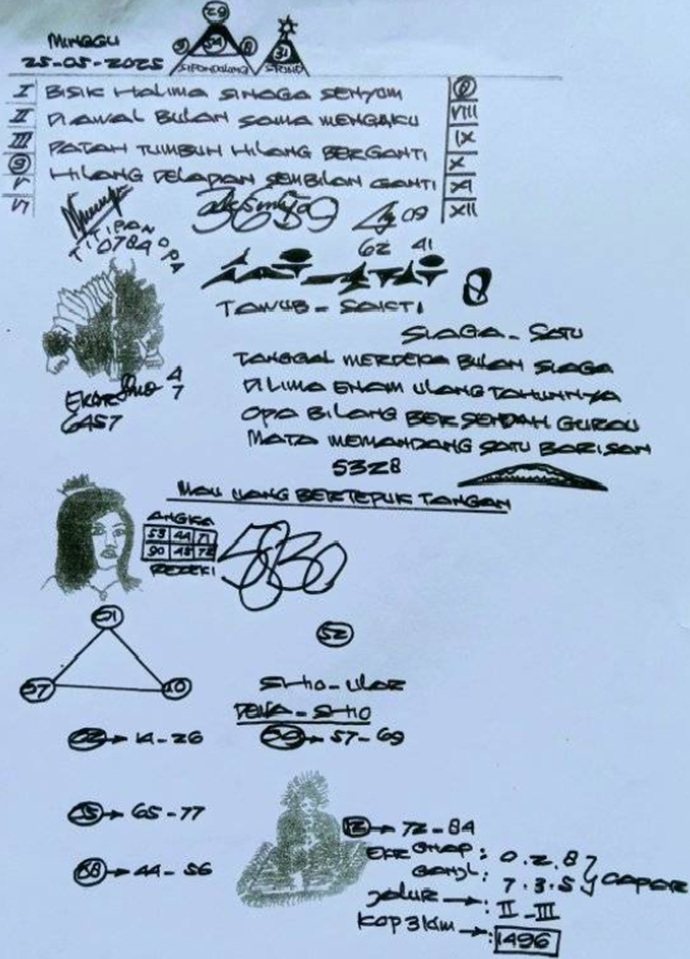 MINGGU
25-05-2025
29
9 54 8
SIPONDALANG
31
SIPOND
I BISIK HALIMA SINAGA SENYUM
II DI AWAL BULAN SAMA MENGAKU VIII
III PATAH TUMBUH HILANG BERGANTI IX
9 X
V HILANG DELAPAN SEMBILAN GANTI XI
VI XII
3659 09
62 41
TITIPAN OPA
0784
8
TANUB - SAKTI
SIAGA - SATU
TANGGAL MERDEKA BULAN SIAGA
DILIMA ENAM ULANG TAHUNNYA
OPA BILANG BERSENDAH GURAU
MATA MEMANDANG SATU BARISAN
5328
EKOR 4
7
6457
MAU UANG BERTEPUK TANGAN
ANGKA
53 44 71
90 48 72
REZEKI
5830
51
57 10
52
SHIO - ULAR
DEWA - SHIO
→ 14-26
→ 57-69
→ 65-77
12 → 72-84
68 → 44-56
EKR GNAP : 0.2.8
GANJL : 7.3.5 CAPAR
JALUR → : II - III
KOP 3 KIM → : 1496